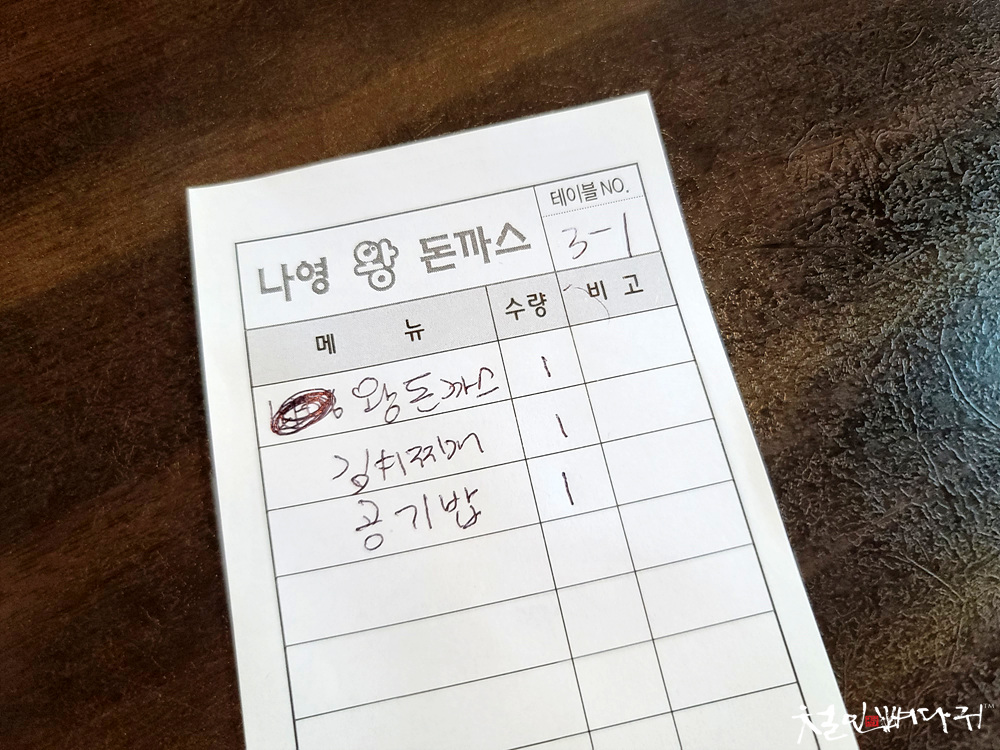 테이블 NO.
나영 왕 돈까스
3-1
메 뉴 수량 비 고
왕돈까스 1
김치찌개 1
공기밥 1
철인뼈다귀™